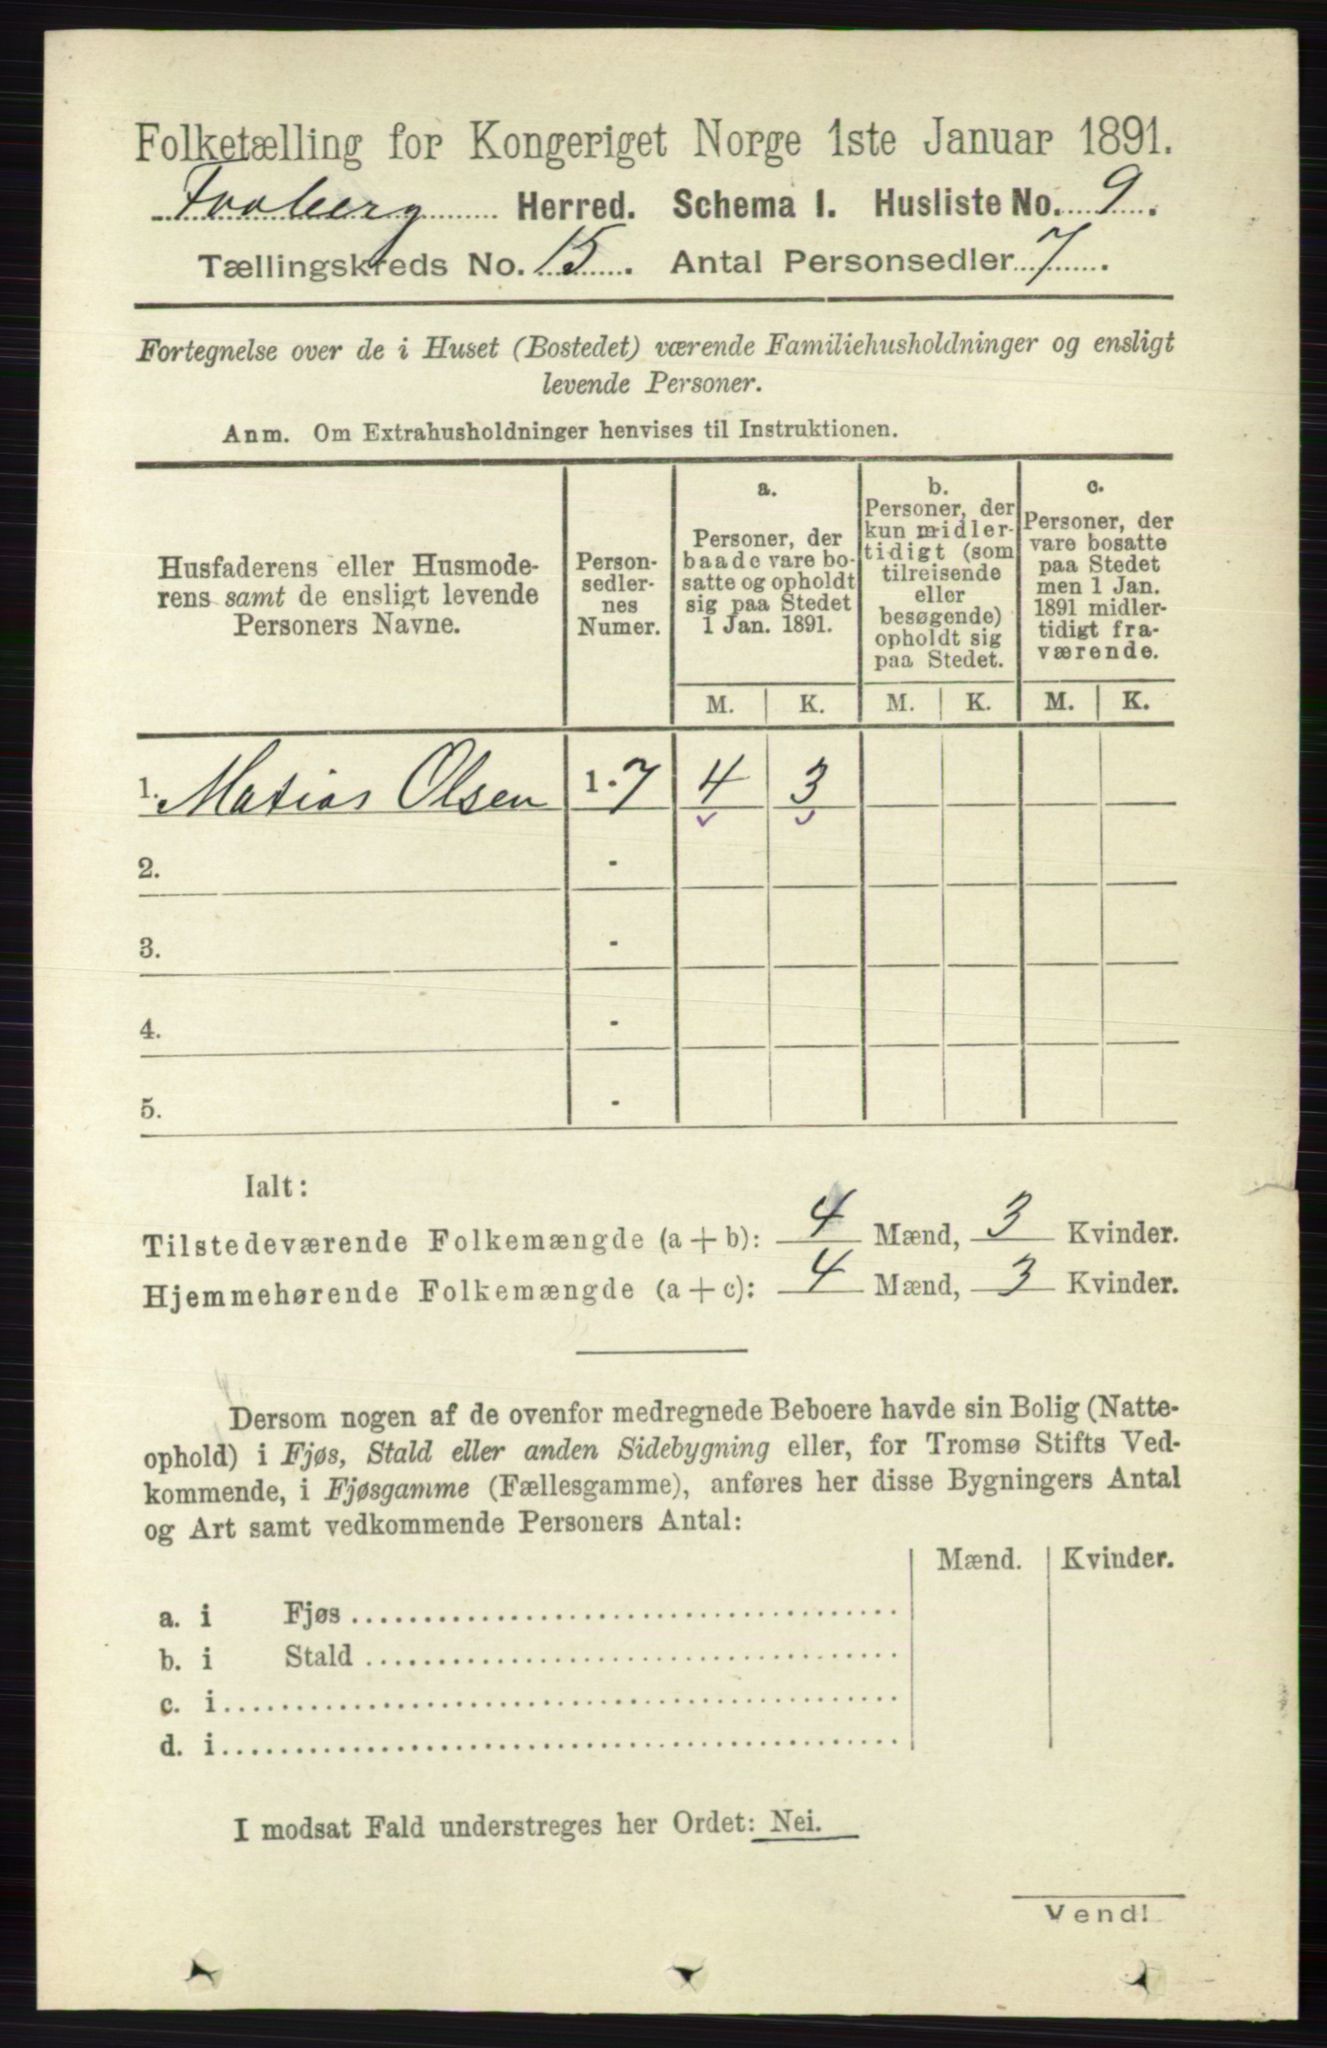 Folketælling for Kongeriget Norge 1ste Januar 1891.
Faaberg Herred. Schema I. Husliste No. 9.
Tællingskreds No. 15. Antal Personsedler 7.
Fortegnelse over de i Huset (Bostedet) værende Familiehusholdninger og ensligt
levende Personer.
Anm. Om Extrahusholdninger henvises til Instruktionen.
Husfaderens eller Husmode-
rens samt de ensligt levende
Personers Navne.
Person-
sedler-
nes
Numer.
a.
Personer, der
baade vare bo-
satte og opholdt
sig paa Stedet
1 Jan. 1891.
b.
Personer, der
kun midler-
tidigt (som
tilreisende
eller
besøgende)
opholdt sig
paa Stedet.
c.
Personer, der
vare bosatte
paa Stedet
men 1 Jan.
1891 midler-
tidigt fra-
værende.
M. K. M. K. M. K.
1. Matias Olsen 1-7 4 3
2. -
3. -
4. -
5. -
Ialt:
Tilstedeværende Folkemængde (a+b): 4 Mænd, 3 Kvinder.
Hjemmehørende Folkemængde (a+c): 4 Mænd, 3 Kvinder.
Dersom nogen af de ovenfor medregnede Beboere havde sin Bolig (Natte-
ophold) i Fjøs, Stald eller anden Sidebygning eller, for Tromsø Stifts Ved-
kommende, i Fjøsgamme (Fællesgamme), anføres her disse Bygningers Antal
og Art samt vedkommende Personers Antal:
Mænd. Kvinder.
a. i Fjøs
b. i Stald
c. i
d. i
I modsat Fald understreges her Ordet: Nei.
Vend!